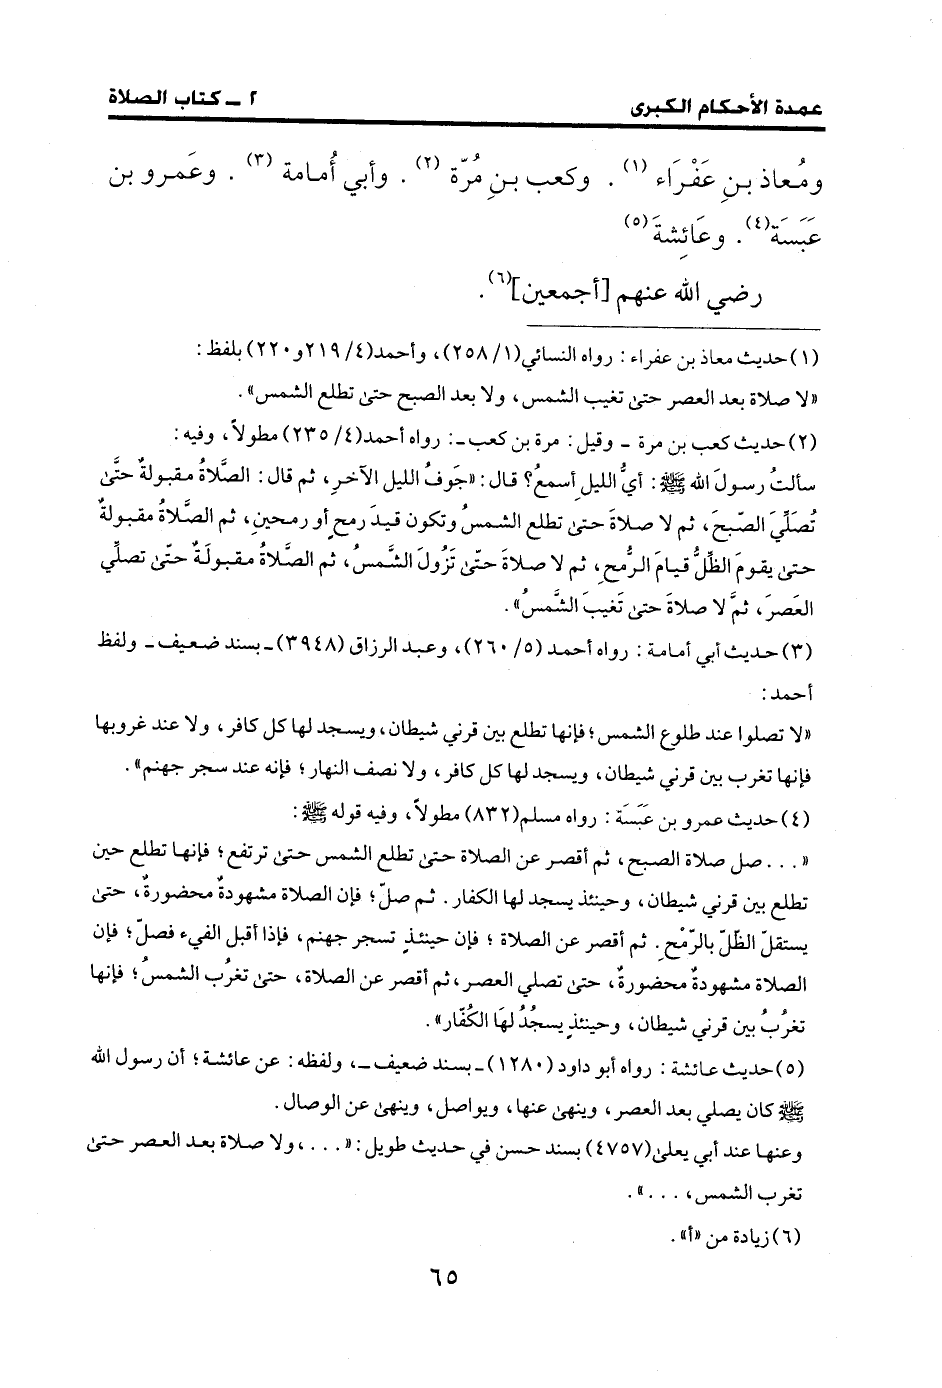 عمدة الأحكام الكبرى ٢ ـ كتاب الصلاة
ومُعاذ بنِ عَفْرَاء (١) . وكعب بنِ مُرّة (٢) . وأبي أُمامة (٣) . وعَمرو بن
عَبَسَة(٤). وعَائِشةَ(٥)
رضي الله عنهم [أجمعين](٦).
(١) حديث معاذ بن عفراء : رواه النسائي(١/ ٢٥٨)، وأحمد(٤/ ٢١٩و٢٢٠) بلفظ :
«لا صلاة بعد العصر حتىٰ تغيب الشمس، ولا بعد الصبح حتىٰ تطلع الشمس».
(٢) حديث كعب بن مرة ـ وقيل : مرة بن كعب ـ: رواه أحمد(٤/ ٢٣٥) مطولاً، وفيه :
سألتُ رسولَ الله ﷺ : أيُّ الليلِ أسمعُ؟ قال : «جَوفُ الليل الآخرِ، ثم قال : الصَّلاةُ مقبولةٌ حتَّىٰ
تُصَلِّيَ الصّبحَ، ثم لا صلاةَ حتىٰ تطلع الشمسُ وتكون قيدَ رمحٍ أو رمحينِ، ثم الصَّلاةُ مقبولةٌ
حتىٰ يقومَ الظِّلُّ قيامَ الرُّمحِ، ثم لا صلاةَ حتّىٰ تَزُولَ الشَّمسُ، ثم الصَّلاةُ مقبولَةٌ حتّىٰ تصلّي
العَصرَ، ثمَّ لا صلاةَ حتىٰ تَغيبَ الشَّمسُ».
(٣) حديث أبي أمامة : رواه أحمد (٥/ ٢٦٠)، وعبد الرزاق (٣٩٤٨) ـ بسند ضعيف ـ ولفظ
أحمد :
«لا تصلوا عند طلوع الشمس؛ فإنها تطلع بين قرني شيطان، ويسجد لها كل كافر، ولا عند غروبها
فإنها تغرب بين قرني شيطان، ويسجد لها كل كافر، ولا نصف النهار؛ فإنه عند سجر جهنم».
(٤) حديث عمرو بن عَبَسَة : رواه مسلم(٨٣٢) مطولاً، وفيه قوله ﷺ :
«... صل صلاة الصبح، ثم أقصر عن الصلاة حتىٰ تطلع الشمس حتىٰ ترتفع؛ فإنها تطلع حين
تطلع بين قرني شيطان، وحينئذ يسجد لها الكفار. ثم صلّ؛ فإن الصلاة مشهودةٌ محضورةٌ، حتىٰ
يستقلّ الظّلّ بالرّمْحِ. ثم أقصر عن الصلاة؛ فإن حينئذٍ تسجر جهنم، فإذا أقبل الفيء فصلّ؛ فإن
الصلاة مشهودةٌ محضورةٌ، حتىٰ تصلي العصر، ثم أقصر عن الصلاة، حتىٰ تغرُب الشمسُ؛ فإنها
تغرُبُ بين قرني شيطان، وحينئذٍ يسجُدُ لهَا الكُفّار».
(٥) حديث عائشة : رواه أبو داود (١٢٨٠) ـ بسند ضعيف ـ، ولفظه : عن عائشة؛ أن رسول الله
ﷺ كان يصلي بعد العصر، وينهىٰ عنها، ويواصل، وينهىٰ عن الوصال.
وعنها عند أبي يعلىٰ(٤٧٥٧) بسند حسن في حديث طويل : «...، ولا صلاة بعد العصر حتىٰ
تغرب الشمس، ...».
(٦) زيادة من «أ».
٦٥